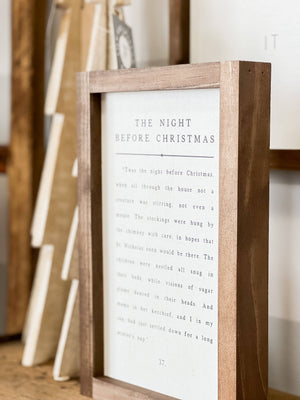 THE NIGHT
BEFORE CHRISTMAS
"'Twas the night before Christmas,
when all through the house not a
creature was stirring, not even a
mouse. The stockings were hung by
the chimney with care, in hopes that
St. Nicholas soon would be there. The
children were nestled all snug in
their beds, while visions of sugar
plums danced in their heads. And
mama in her kerchief, and I in my
cap, had just settled down for a long
winter's nap."
37.
IT